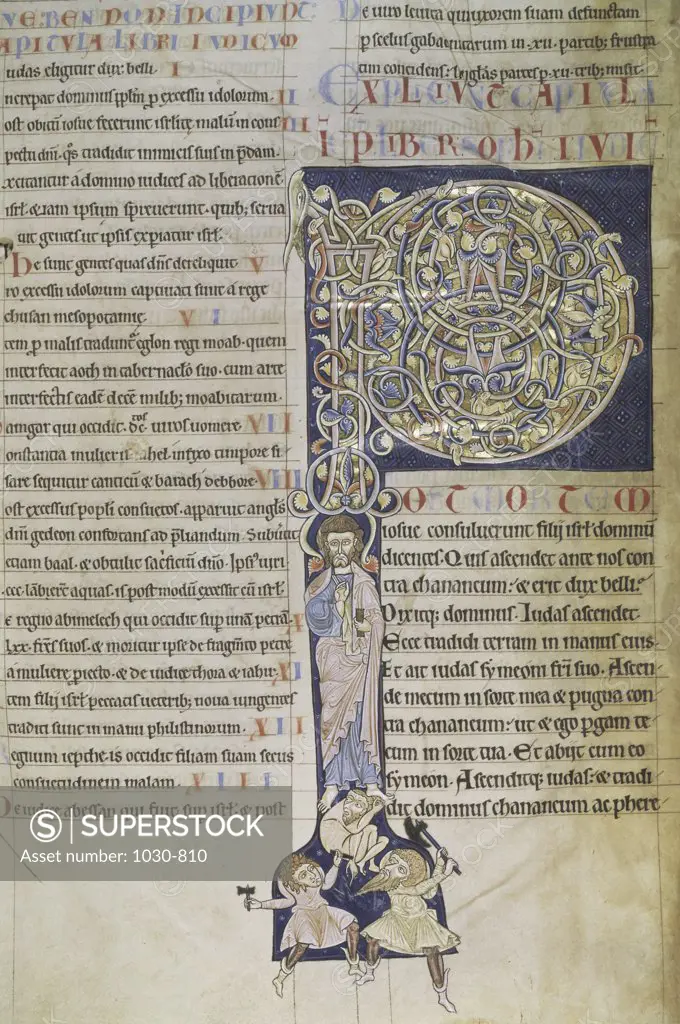 NE: BENDON INCIPIUNT
CAPITULA LIBRI IVDICVM
iudas eligitur dux belli. I
ost obitum iosue fecerunt isrl'ite malum in cons III
pectu dni. qs tradidit inimicis suis in pdam.
xcitantur a domino iudices ad liberatione
isrl. & iam ipsum spreuerunt. quib; serua
uit gentes ut ipsis expiatur isrl.
He sunt gentes quas dns dereliquit. V
ro excessu idolorum captiuati sunt a rege
chusan mesopotamie. VI
tem p malis tradunt eglon regi moab. quem
interfecit aoth in tabernaclo suo. cum arte
interfectis eade dece milib; moabitarum.
amgar qui occidit. dc tos uiros uomere. VIII
onstantia mulieris iahel infixo timpore si
sare sequitur canticu & barach debbore. VIIII
ost excessus popli consuetos. apparuit angls
dni gedeon confortans ad pliandum. Subuertit
etiam baal. & obtulit sacficium dno.
e regno abimelech qui occidit sup una petra. X
lxx. frs suos. & moritur ipse de fragmto petre
a muliere piecto. & de iudice thora & iahir. XI
tem filii isrl peccatis ueterib; noua iungentes
traditi sunt in manu philistinorum. XII
egnum iepthe. is occidit filiam suam secus
consuetudinem malam. XIII
De iudice abessan qui fuit sup isrl. & post
De uiro leuita qui uxorem suam defunctam
p scelus gabaonitarum in .xii. partib; frustra
tim concidens. singlas partes p .xii. trib; misit.
EXPLICIUNT CAPITL
INCIPIT LIBER SOPHTIM
POST MORTEM
iosue consuluerunt filij isrl. dominum
dicentes. Quis ascendet ante nos con
tra chananeum. & erit dux belli.
Dixitq; dominus. Iudas ascendet.
Ecce tradidi terram in manus eius.
Et ait iudas symeoni fri suo. Ascen
de mecum in sorte mea & pugna con
tra chananeum. ut & ego pergam te
cum in sorte tua. Et abijt cum eo
symeon. Ascenditq; iudas. & tradi
dit dominus chananeum ac phere
SUPERSTOCK
Asset number: 1030-810